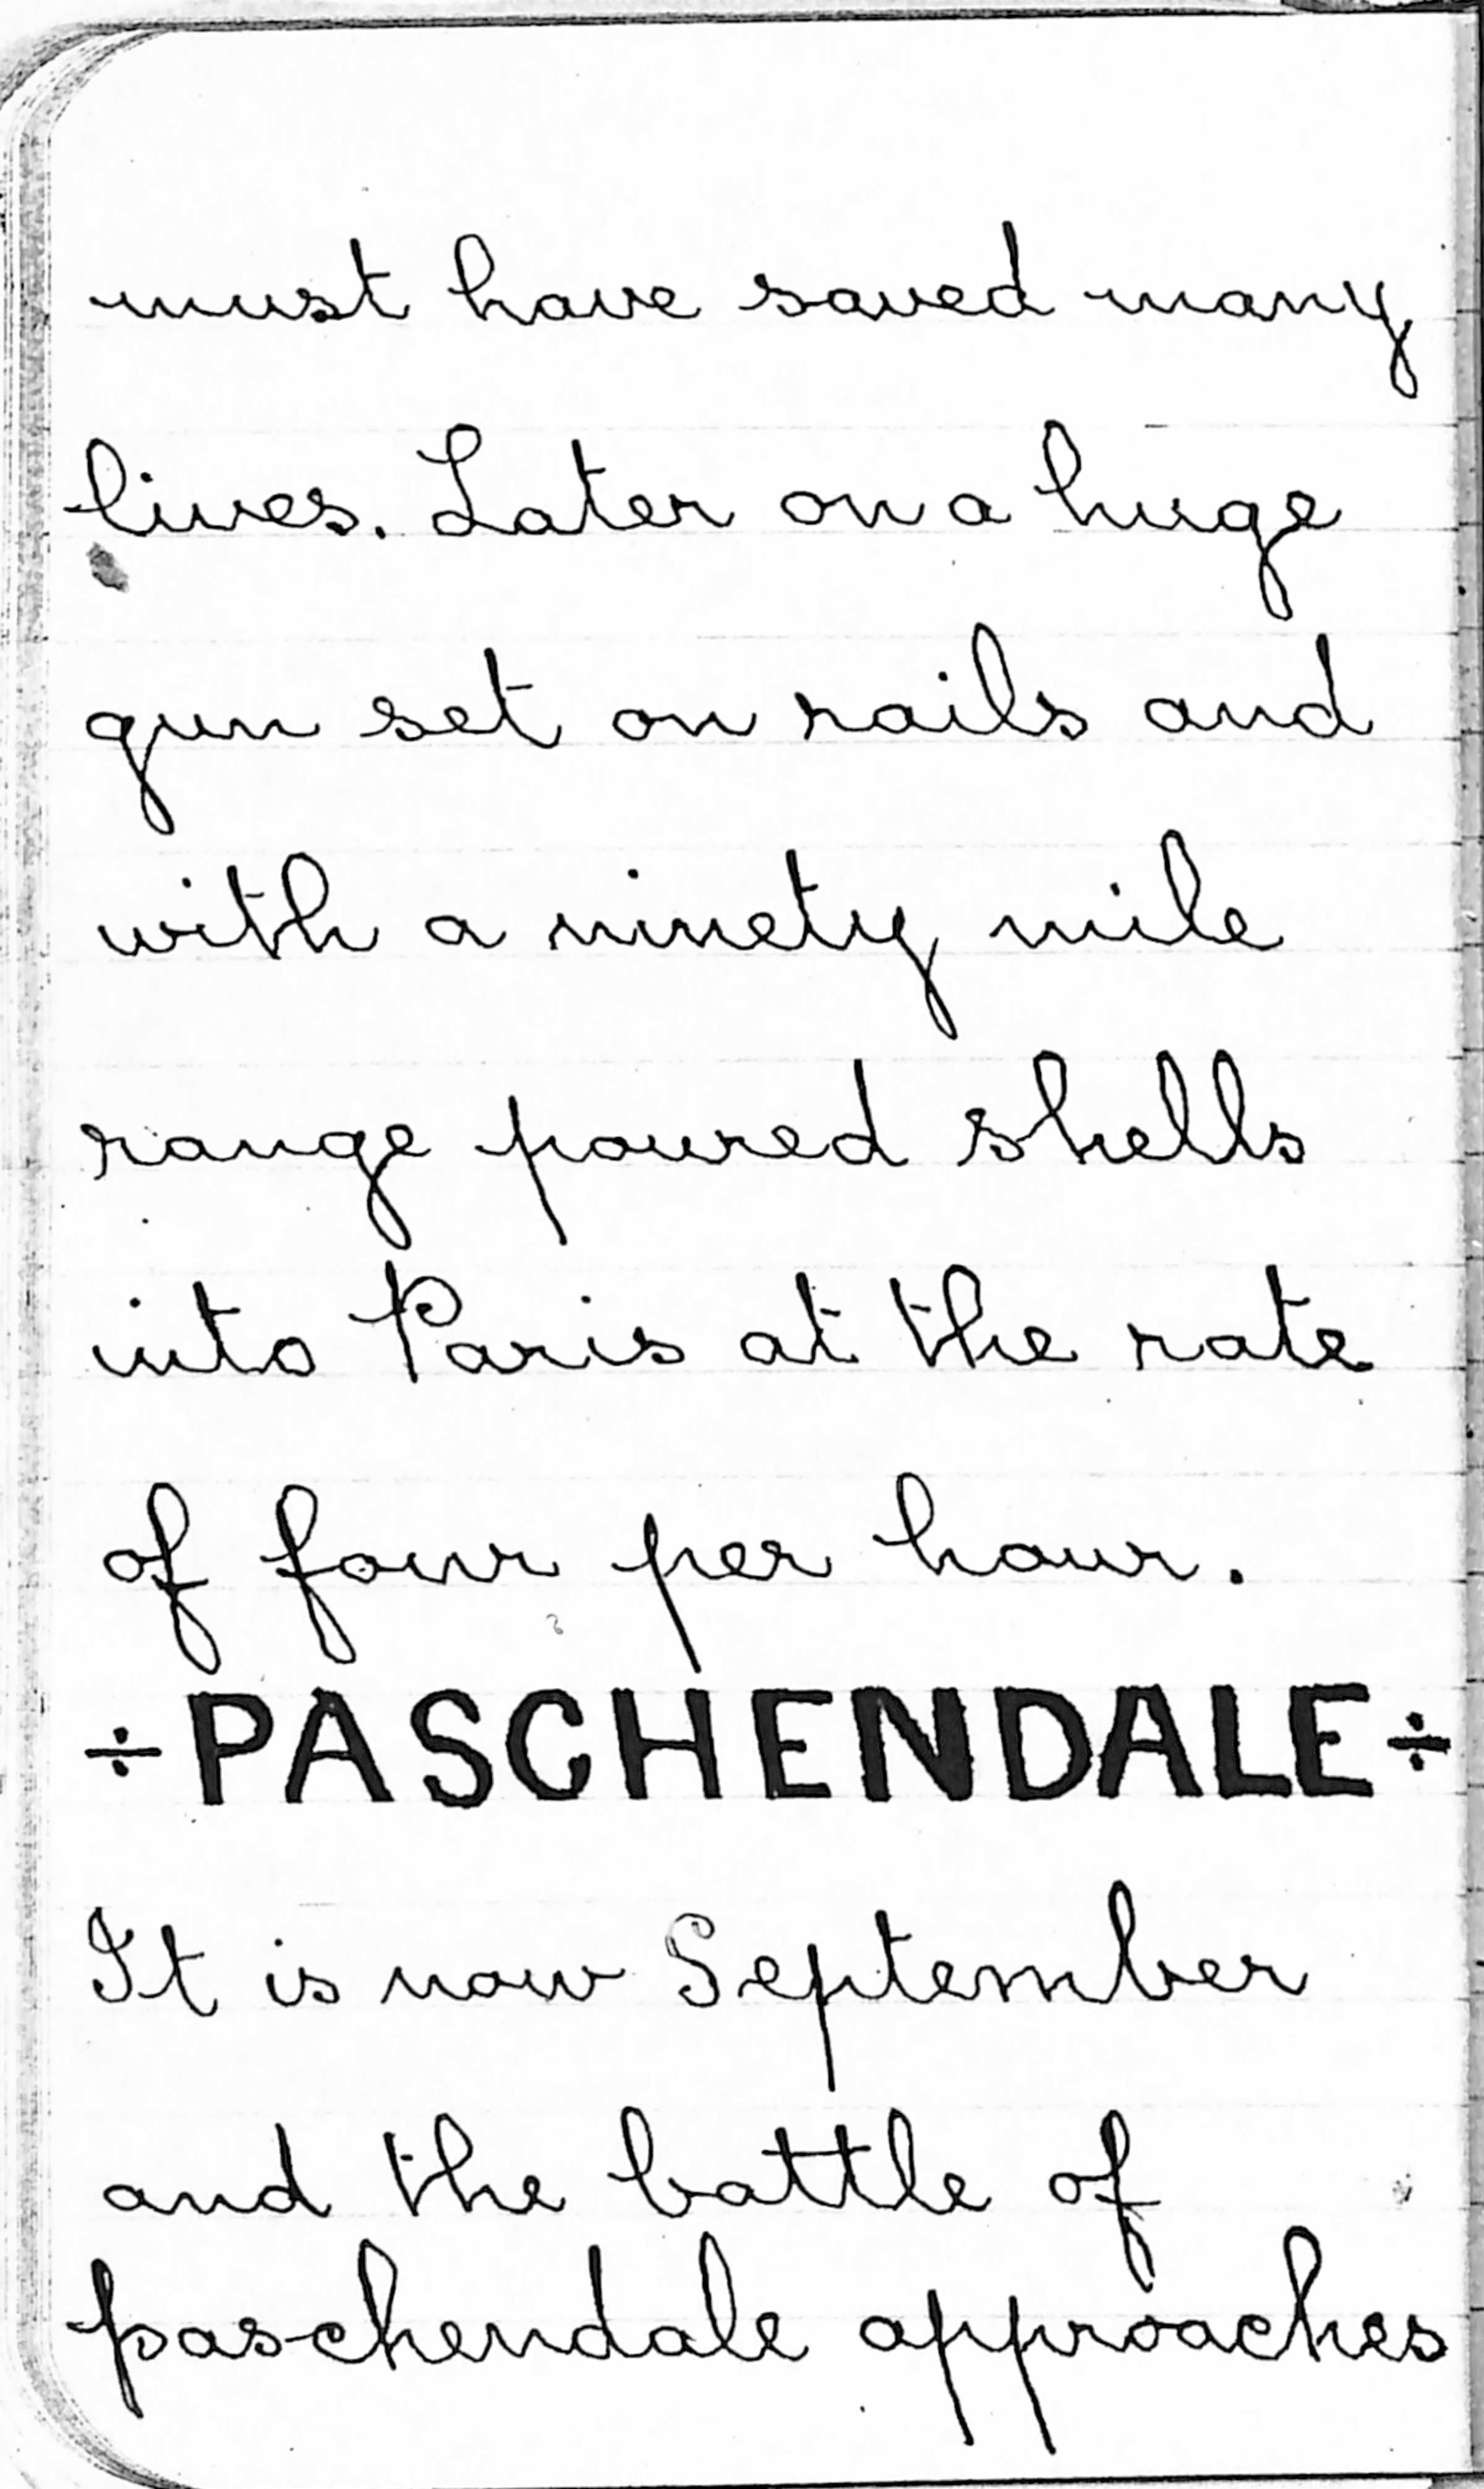 must have saved many
lives. Later on a huge
gun set on rails and
with a ninety mile
range poured shells
into Paris at the rate
of four per hour.
÷PASCHENDALE÷
It is now September
and the battle of
paschendale approaches